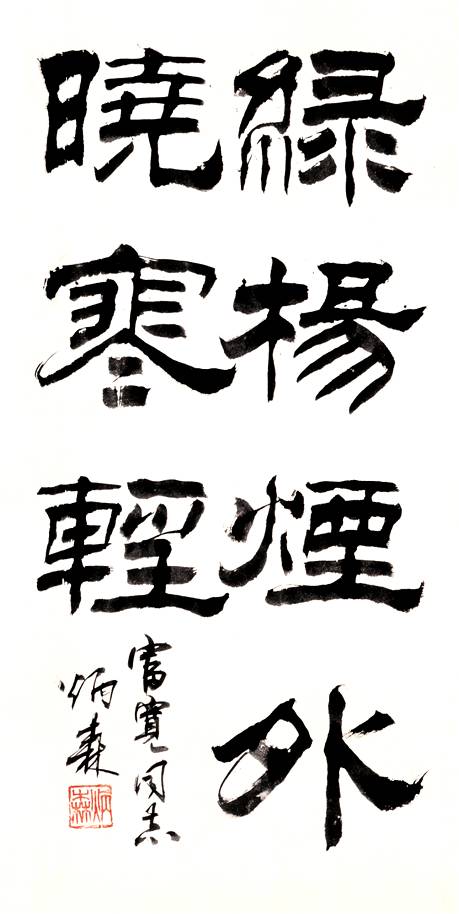 綠楊煙外
曉寒輕
富寬同志
炳森
炳森